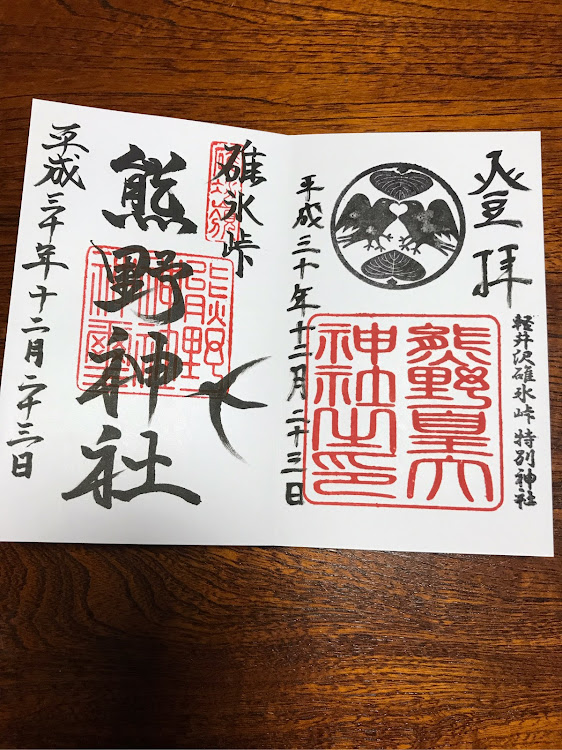 登拝
軽井沢碓氷峠 特別神社
熊野皇大
神社之印
平成三十年十二月二十三日
碓氷峠
熊野神社
平成三十年十二月二十三日